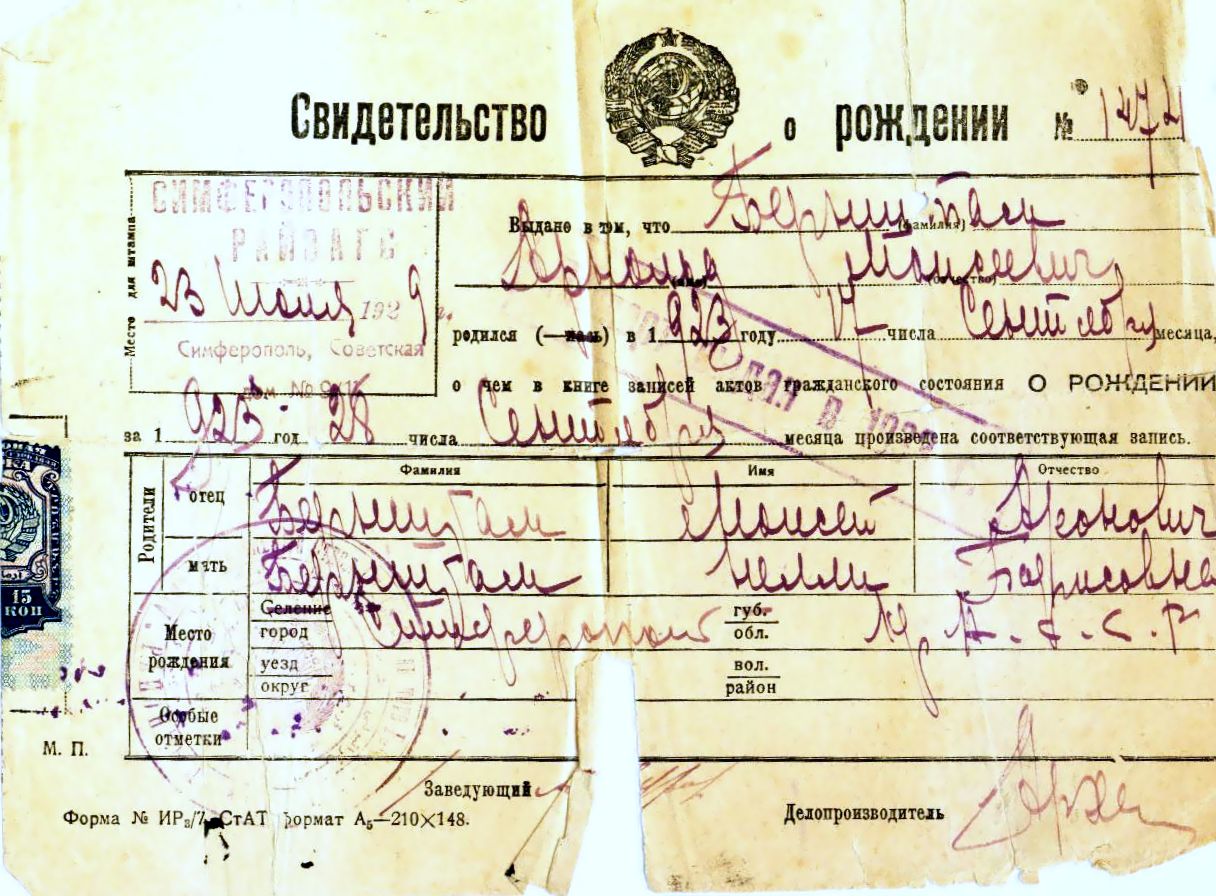 Свидетельство о рождении № 1472
СИМФЕРОПОЛЬСКИЙ
РАЙЗАГС
Место для штампа
23 Июля 1929 г.
Симферополь, Советская
дом №
Выдано в том, что Бернштам
(фамилия)
Арнольд Моисеевич
(имя) (отчество)
родился (—лась) в 1923 году 17 числа Сентября месяца,
о чем в книге записей актов гражданского состояния О РОЖДЕНИИ
за 1923 год 28 числа Сентября месяца произведена соответствующая запись.
Фамилия Имя Отчество
Родители
отец Бернштам Моисей Аронович
мать Бернштам Нелли Борисовна
Место рождения
Селение
город Симферополь губ.
обл. Кр. А. С. С. Р
уезд
округ
вол.
район
Особые отметки
15
КОП
М. П.
Заведующий
Делопроизводитель
Форма № ИР₃/7. СтАТ формат А₅—210×148.